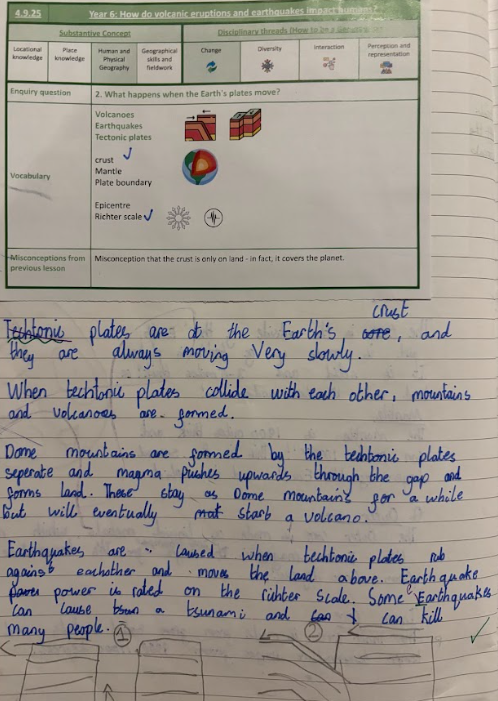 4.9.25 Year 6: How do volcanic eruptions and earthquakes impact humans?
Substantive Concept Disciplinary threads (How to be a
Locational knowledge Place knowledge Human and Physical Geography Geographical skills and fieldwork Change Diversity Interaction Perception and representation
Enquiry question 2. What happens when the Earth's plates move?
Vocabulary
Volcanoes
Earthquakes
Tectonic plates
crust
Mantle
Plate boundary
Epicentre
Richter scale
Misconceptions from previous lesson Misconception that the crust is only on land - in fact, it covers the planet.
crust
Techtonic plates are at the Earth's core, and
they are always moving very slowly.
When techtonic plates collide with each other, mountains
and volcanoes are formed.
Dome mountains are formed by the techtonic plates
seperate and magma pushes upwards through the gap and
forms land. These stay as Dome mountains for a while
but will eventually start a volcano.
Earthquakes are caused when techtonic plates rub
against eachother and moves the land above. Earthquake
power power is rated on the richter scale. Some Earthquakes
can cause a tsunami and can can kill
many people.
1 2